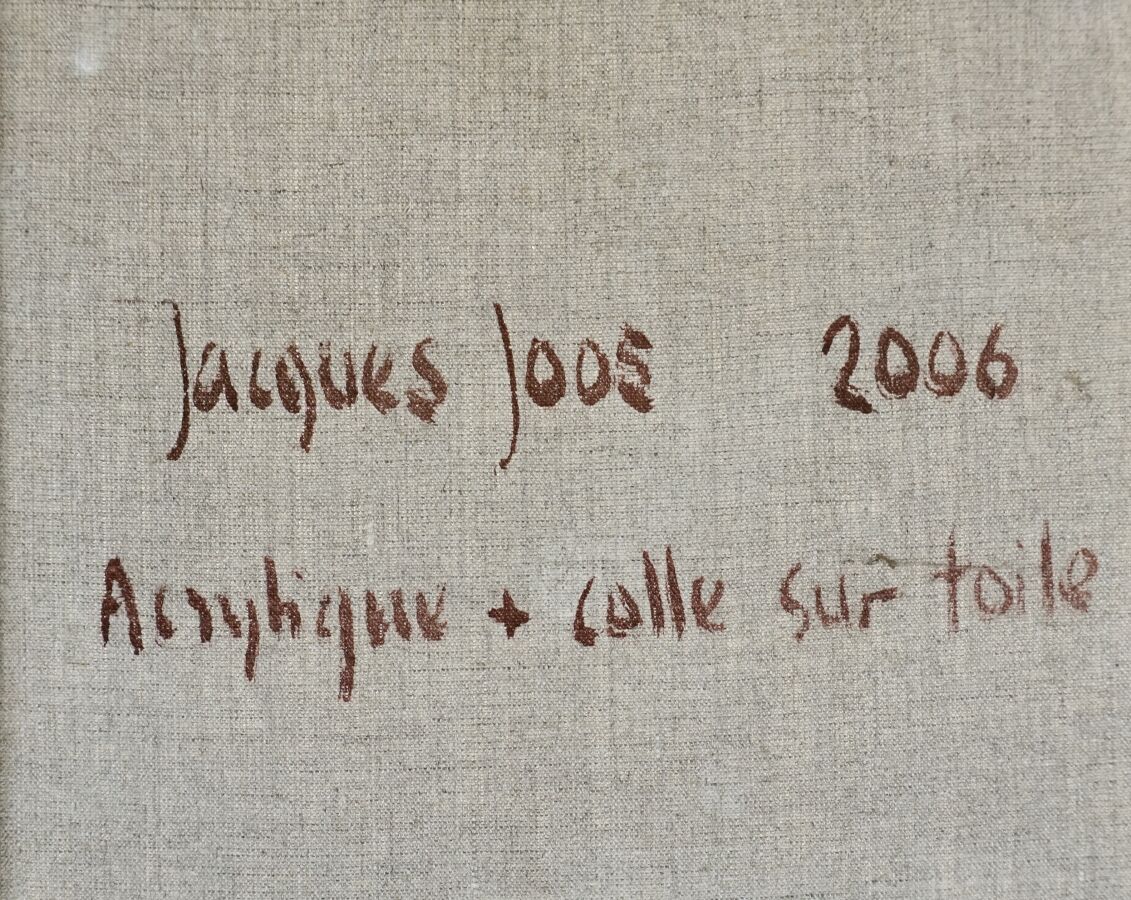 Jacques Joos 2006
Acrylique + colle sur toile